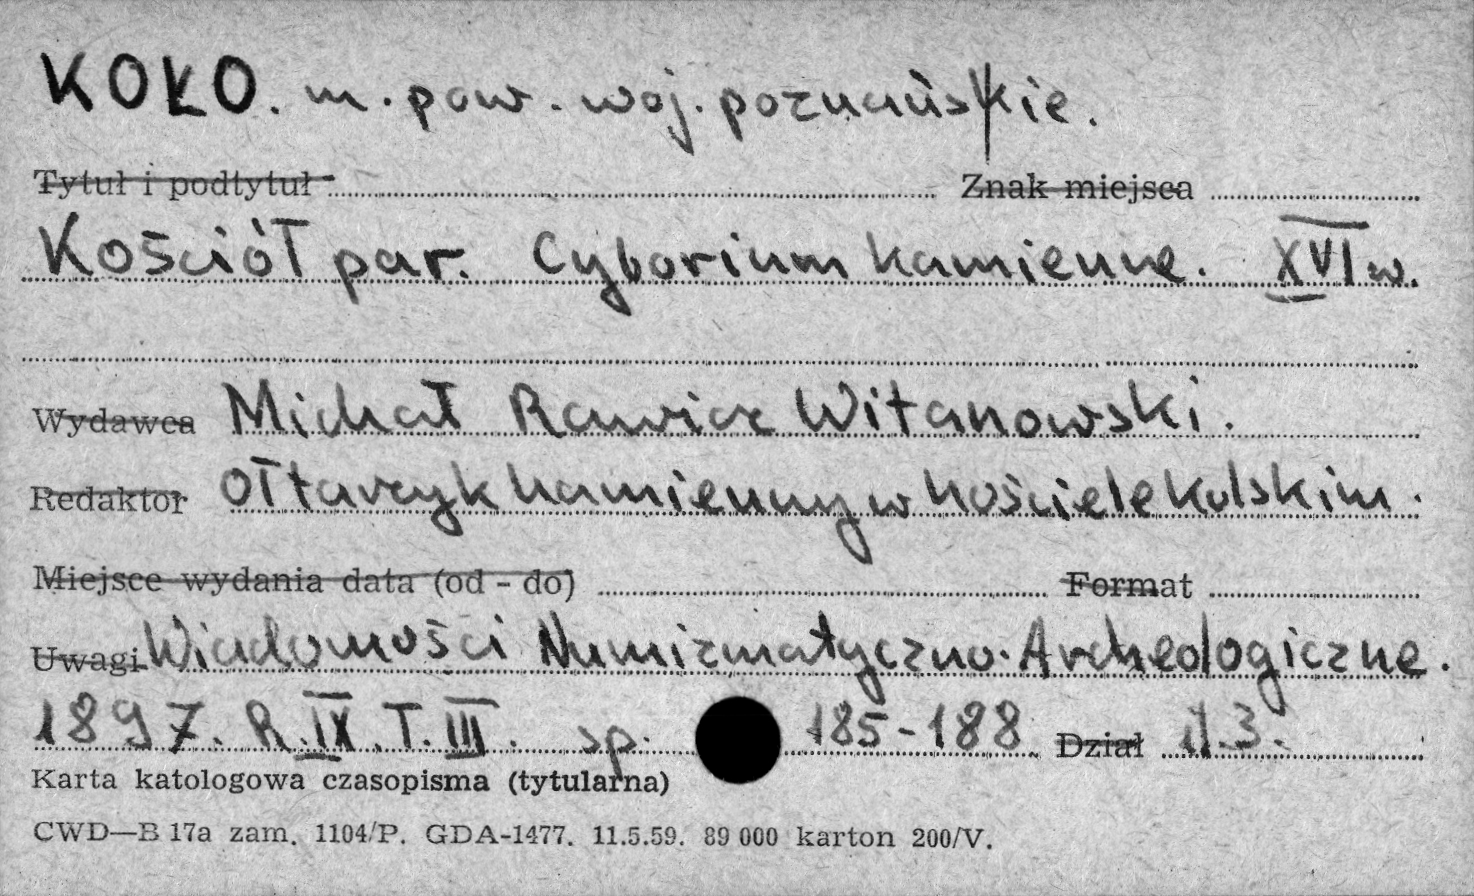 KOŁO. m. pow. woj. poznańskie.
Tytuł i podtytuł Znak miejsca
Kościół par. Cyborium kamienne. XVI w.
Wydawca Michał Rawicz Witanowski.
Redaktor ołtarzyk kamienny w kościele kolskim.
Miejsce wydania data (od - do) Format
Uwagi Wiadomości Numizmatyczno-Archeologiczne.
1897. R. IX. T. III. sp. 185-188 Dział il.3.
Karta katologowa czasopisma (tytularna)
CWD—B 17a zam. 1104/P. GDA-1477. 11.5.59. 89 000 karton 200/V.